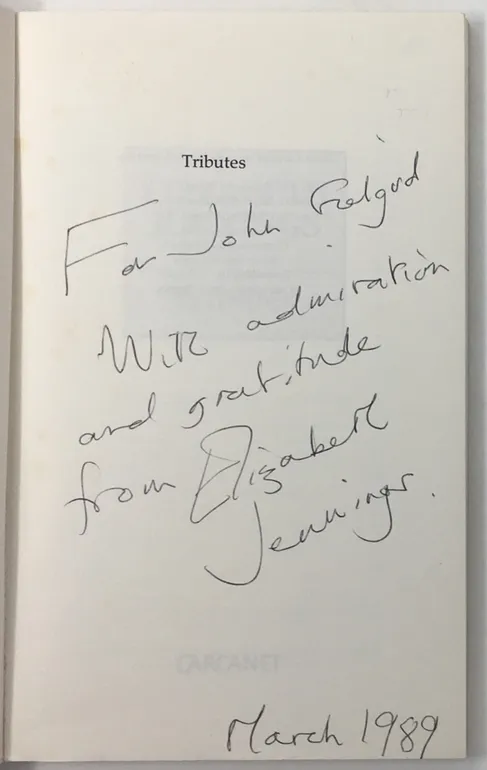 Tributes
For John Gielgud
With admiration
and gratitude
from Elizabeth
Jennings.
CARCANET
March 1989